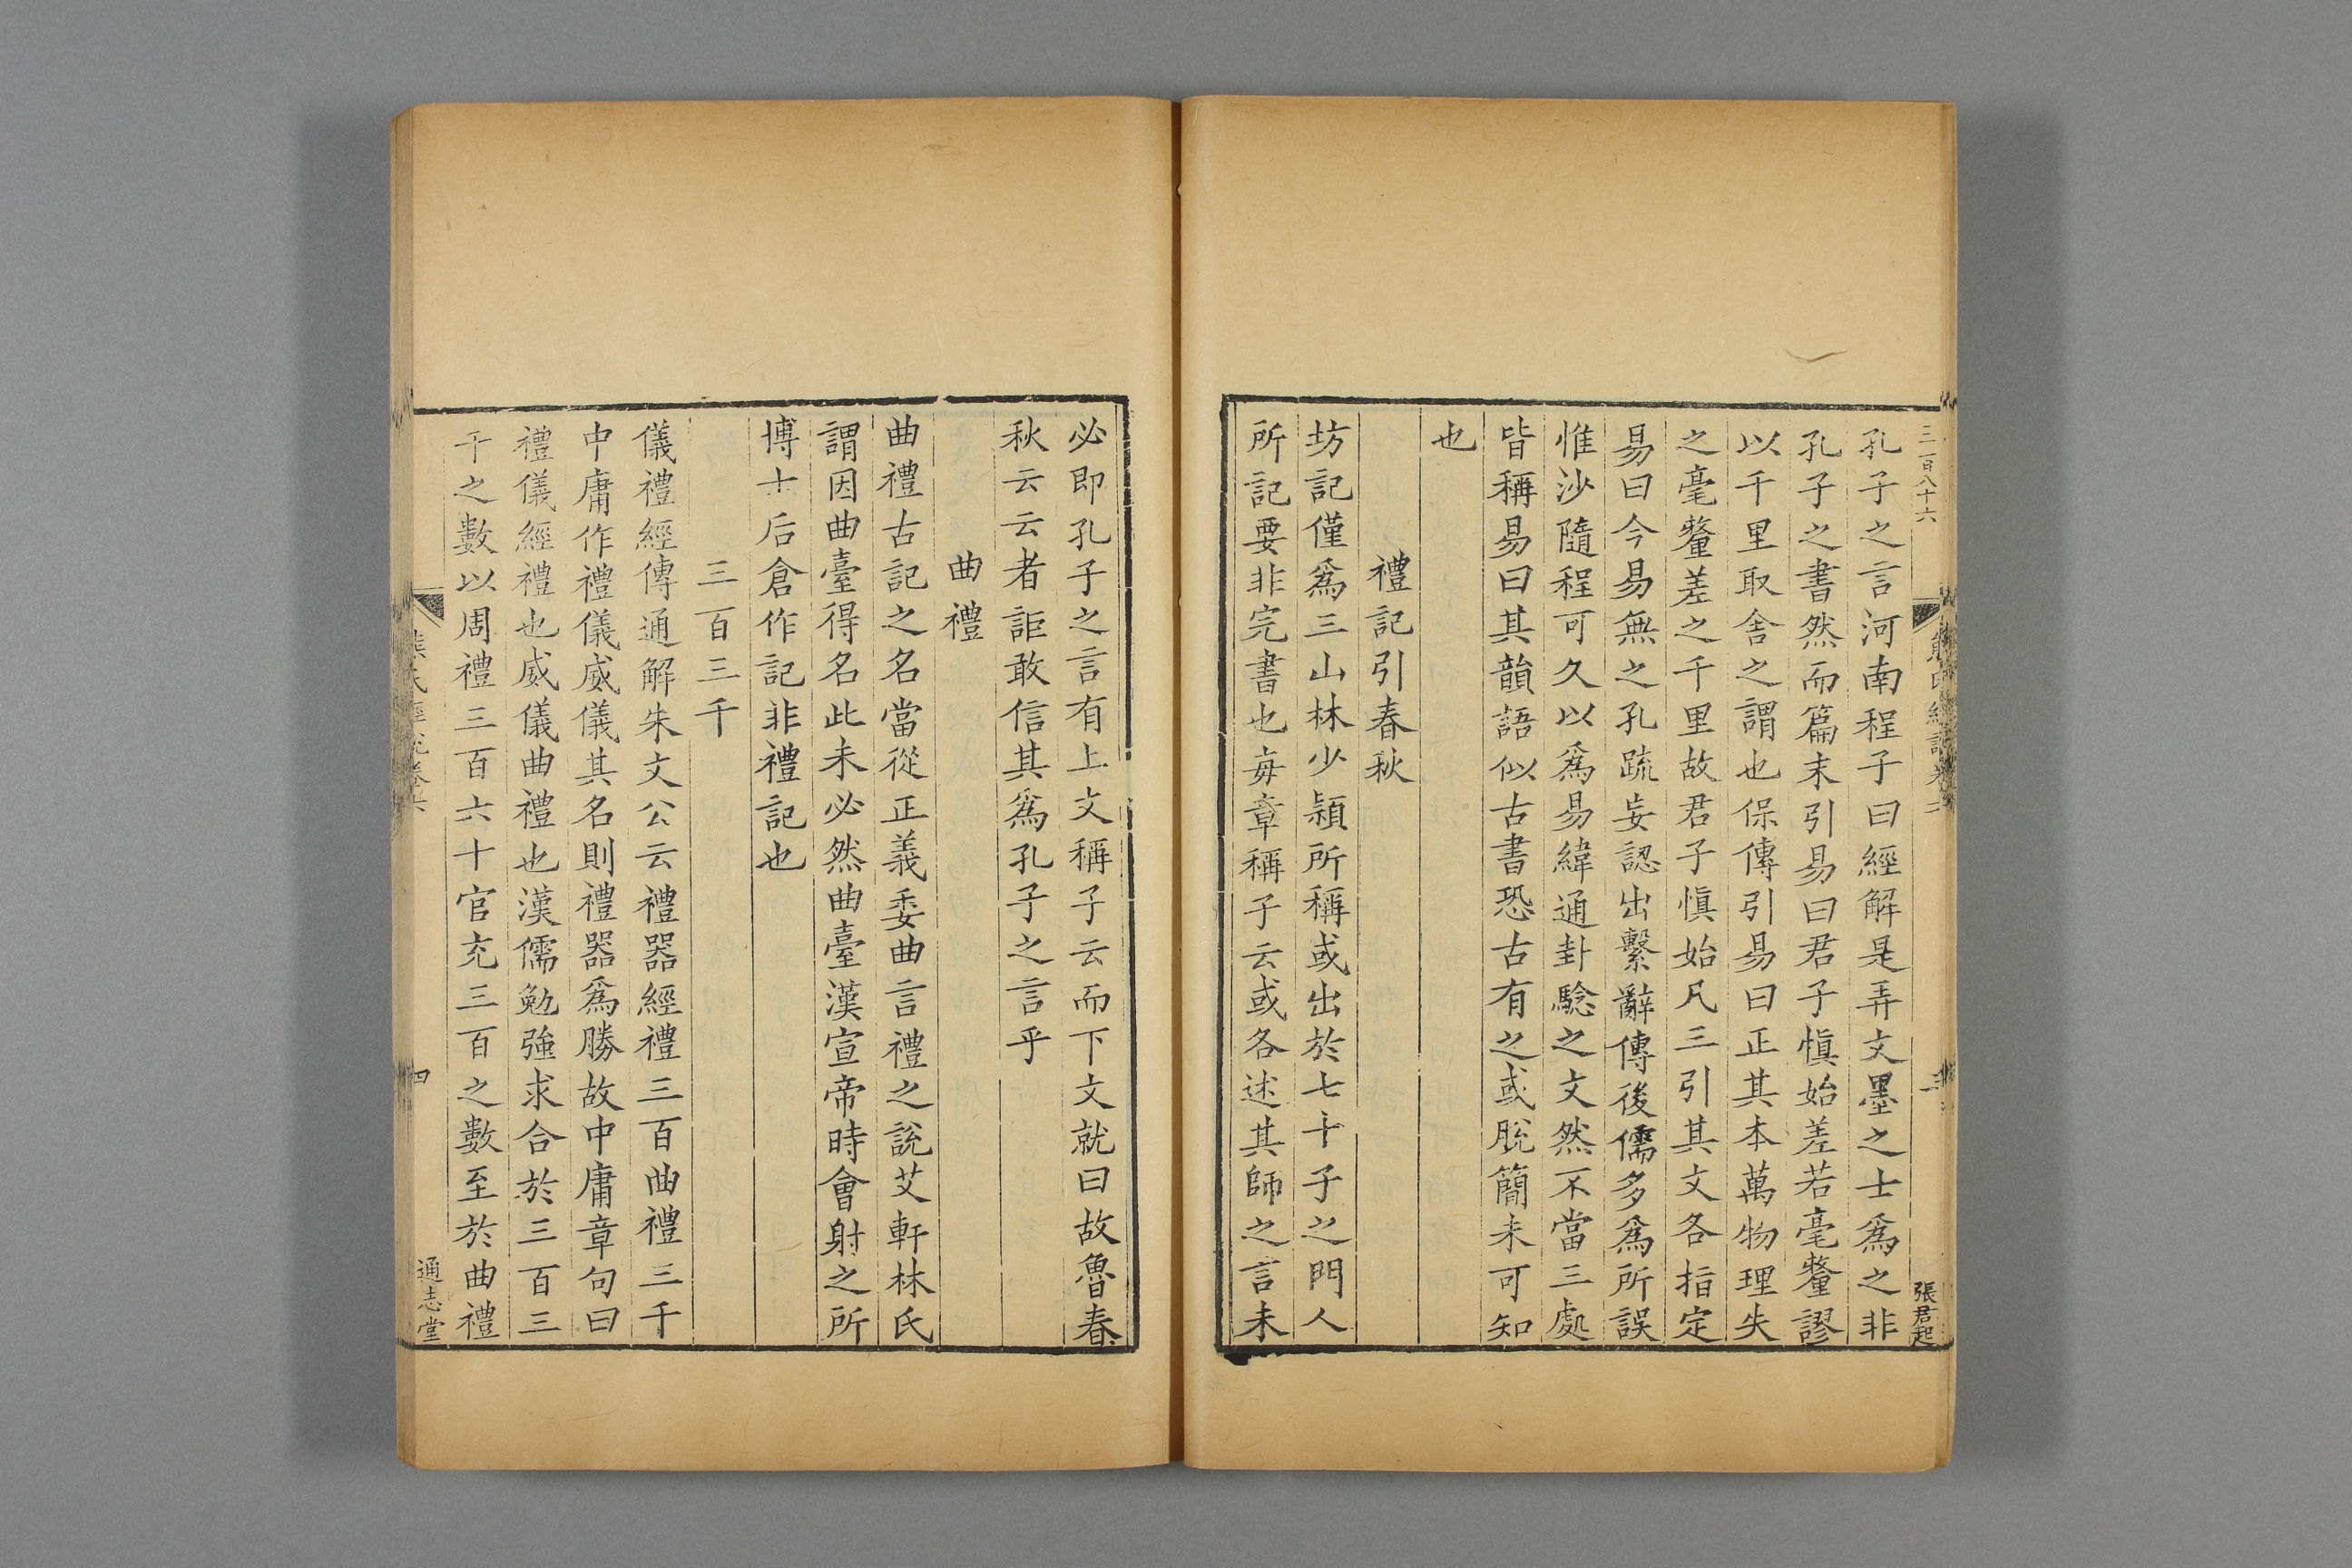 三百八十六
張君起
孔子之言河南程子曰經解是弄文墨之士爲之非
孔子之書然而篇末引易曰君子愼始差若毫釐謬
以千里取舍之謂也保傳引易曰正其本萬物理失
之毫釐差之千里故君子愼始凡三引其文各指定
易曰今易無之孔疏妄認出繫辭傳後儒多爲所誤
惟沙隨程可久以爲易緯通卦驗之文然不當三處
皆稱易曰其韻語似古書恐古有之或脫簡未可知
也
禮記引春秋
坊記僅爲三山林少穎所稱或出於七十子之門人
所記要非完書也毎章稱子云或各述其師之言未
必即孔子之言有上文稱子云而下文就曰故魯春
秋云云者詎敢信其爲孔子之言乎
曲禮
曲禮古記之名當從正義委曲言禮之說艾軒林氏
謂因曲臺得名此未必然曲臺漢宣帝時會射之所
博士后倉作記非禮記也
三百三千
儀禮經傳通解朱文公云禮器經禮三百曲禮三千
中庸作禮儀威儀其名則禮器爲勝故中庸章句曰
禮儀經禮也威儀曲禮也漢儒勉強求合於三百三
千之數以周禮三百六十官充三百之數至於曲禮
四
通志堂